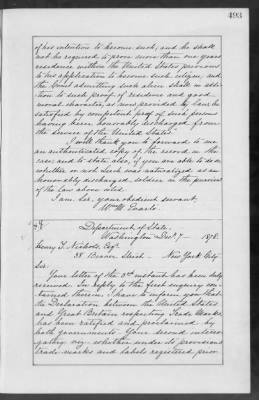 493
of his intention to become such, and he shall
not be required to prove more than one years
residence within the United States previous
to his application to become such citizen, and
the Court admitting such alien shall in addi-
tion to such proof of residence and good
moral character, as now provided by law, be
satisfied by competent proof of such persons
having been honorably discharged from
the service of the United States."
I will thank you to forward to me
an authenticated copy of the record in the
case, and to state also, if you are able to do so
whether or not such was naturalized as an
honorably discharged soldier in the purview
of the law above cited.
I am, Sir, your obedient servant,
Wm M. Evarts.
Department of State,
Washington Decr 7 1878.
Henry T. Nichols, Esqr.
38 Beaver Street. New York City
Sir:
Your letter of the 3rd instant has been duly
received. In reply to the first inquiry con-
tained therein, I have to inform you that
the Declaration between the United States
and Great Britain respecting Trade Marks
has been ratified and proclaimed by
both governments. Your second interro-
gatory viz: whether under its provisions
trade-marks and labels registered prior